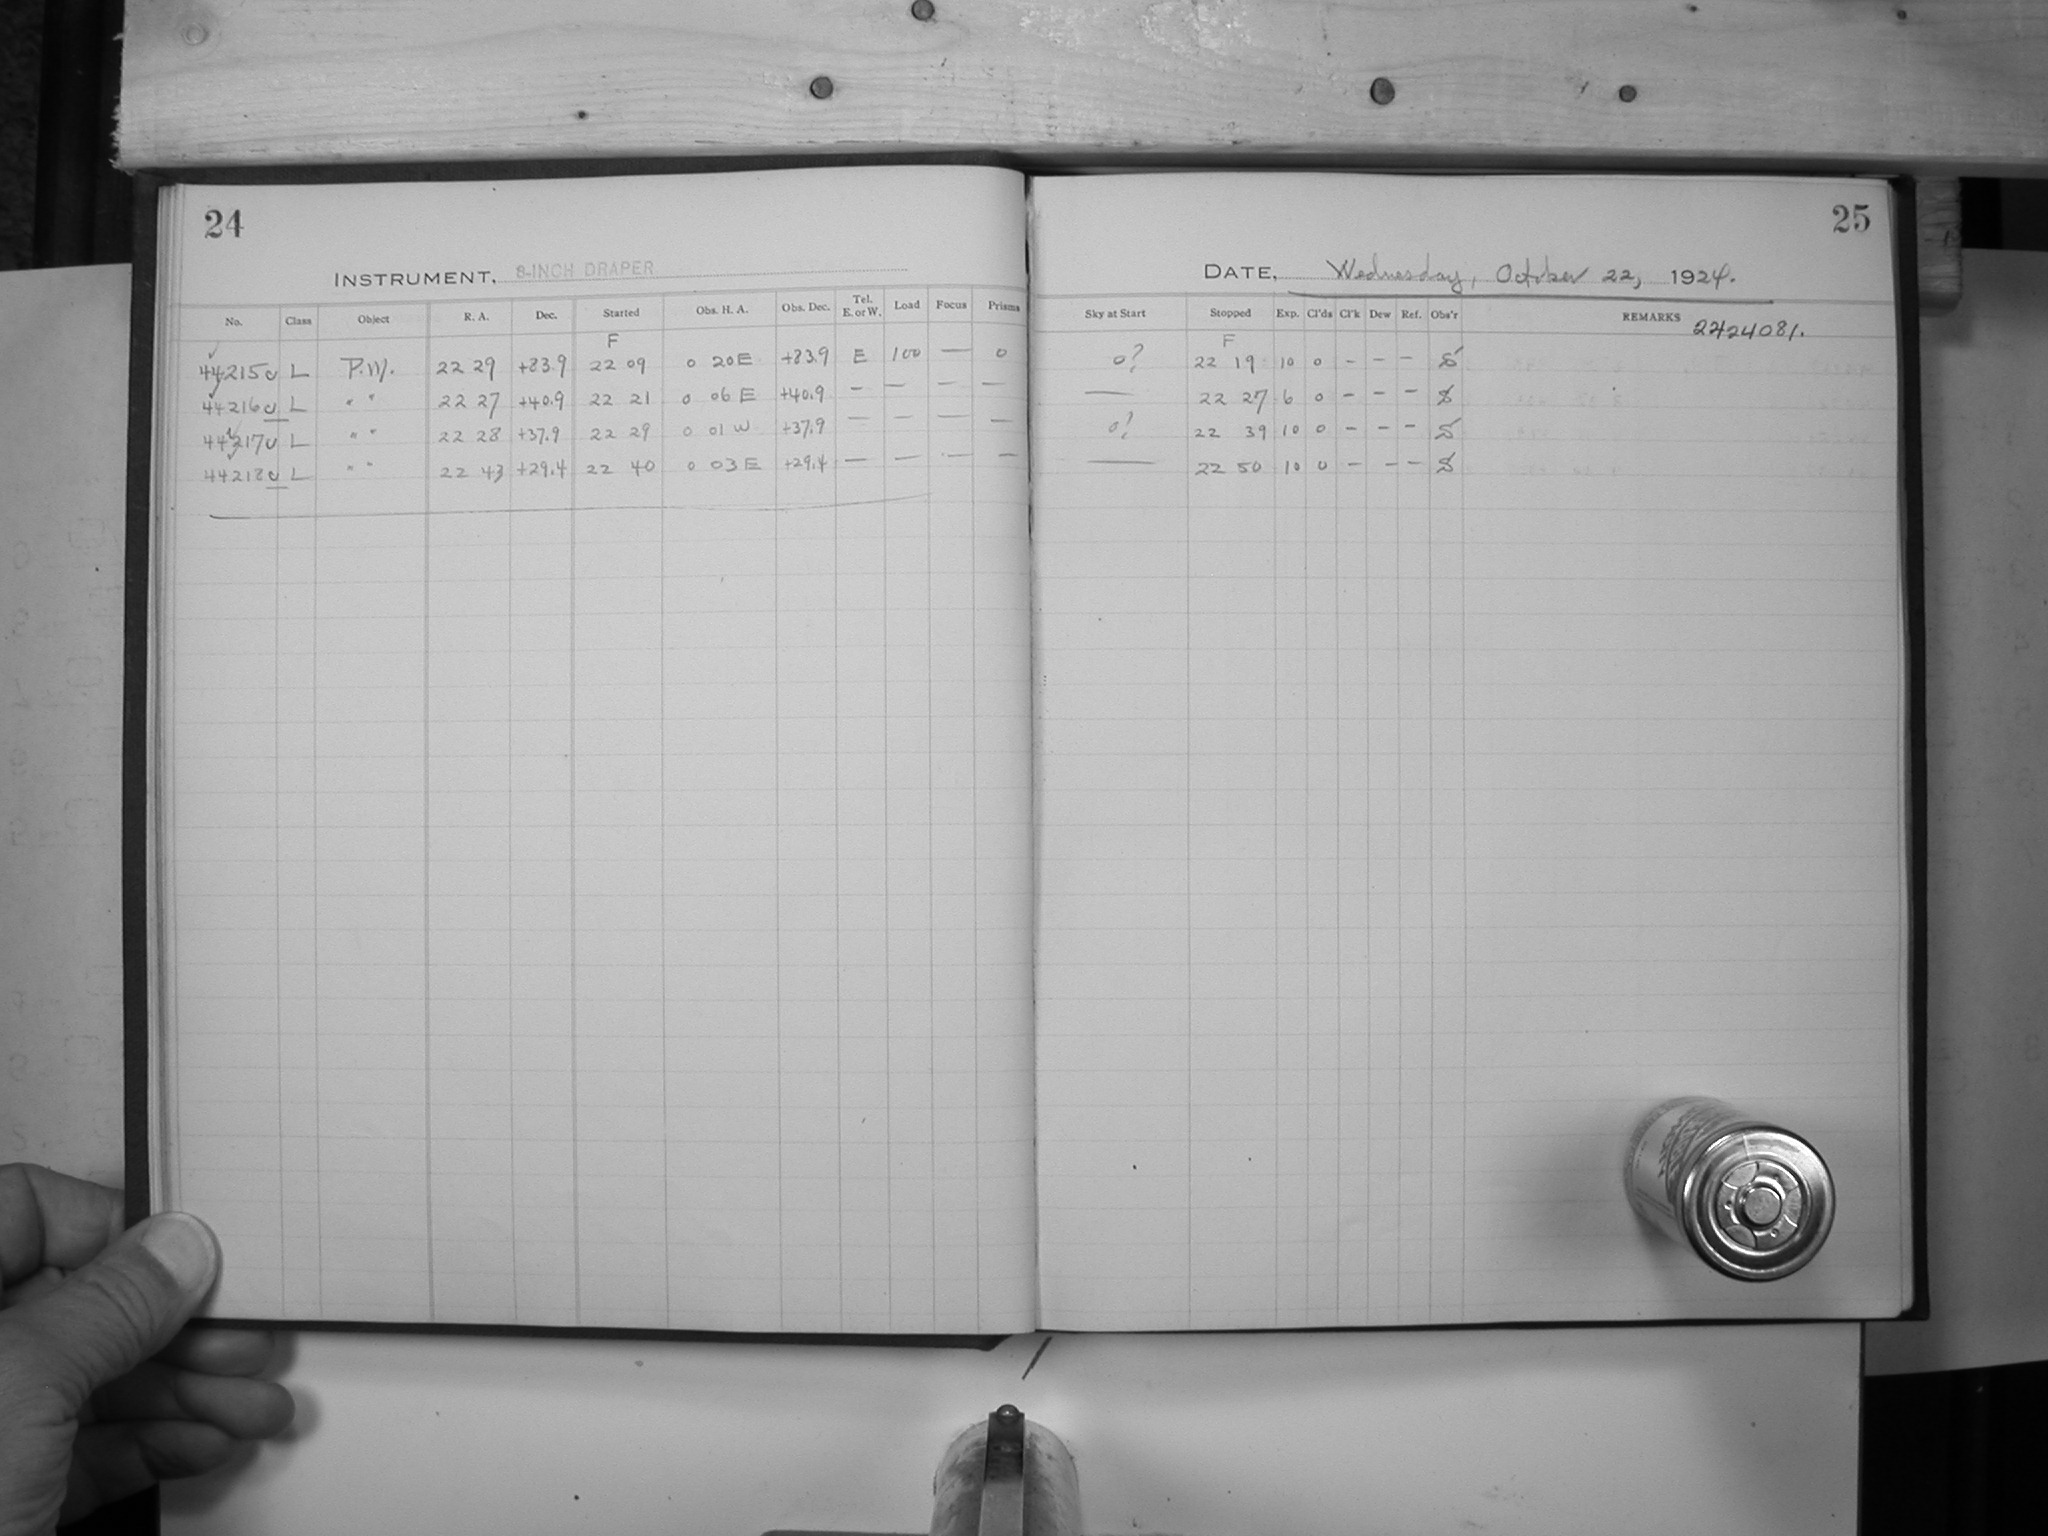 24
INSTRUMENT, 8-INCH DRAPER
No. Class Object R. A. Dec. Started Obs. H. A. Obs. Dec. Tel. E. or W. Load Focus Prisms
F
44215 L P.M. 22 29 +83.9 22 09 0 20 E +83.9 E 100 — 0
44216 L " " 22 27 +40.9 22 21 0 06 E +40.9 — — — —
44217 L " " 22 28 +37.9 22 29 0 01 W +37.9 — — — —
44218 L " " 22 43 +29.4 22 40 0 03 E +29.4 — — — —
25
DATE, Wednesday, October 22, 1924.
Sky at Start Stopped Exp. Cl'ds Cl'k Dew Ref. Obs'r REMARKS 2424081.
F
0? 22 19 10 0 – – –
— 22 27 6 0 – – –
0? 22 39 10 0 – – –
— 22 50 10 0 – – –